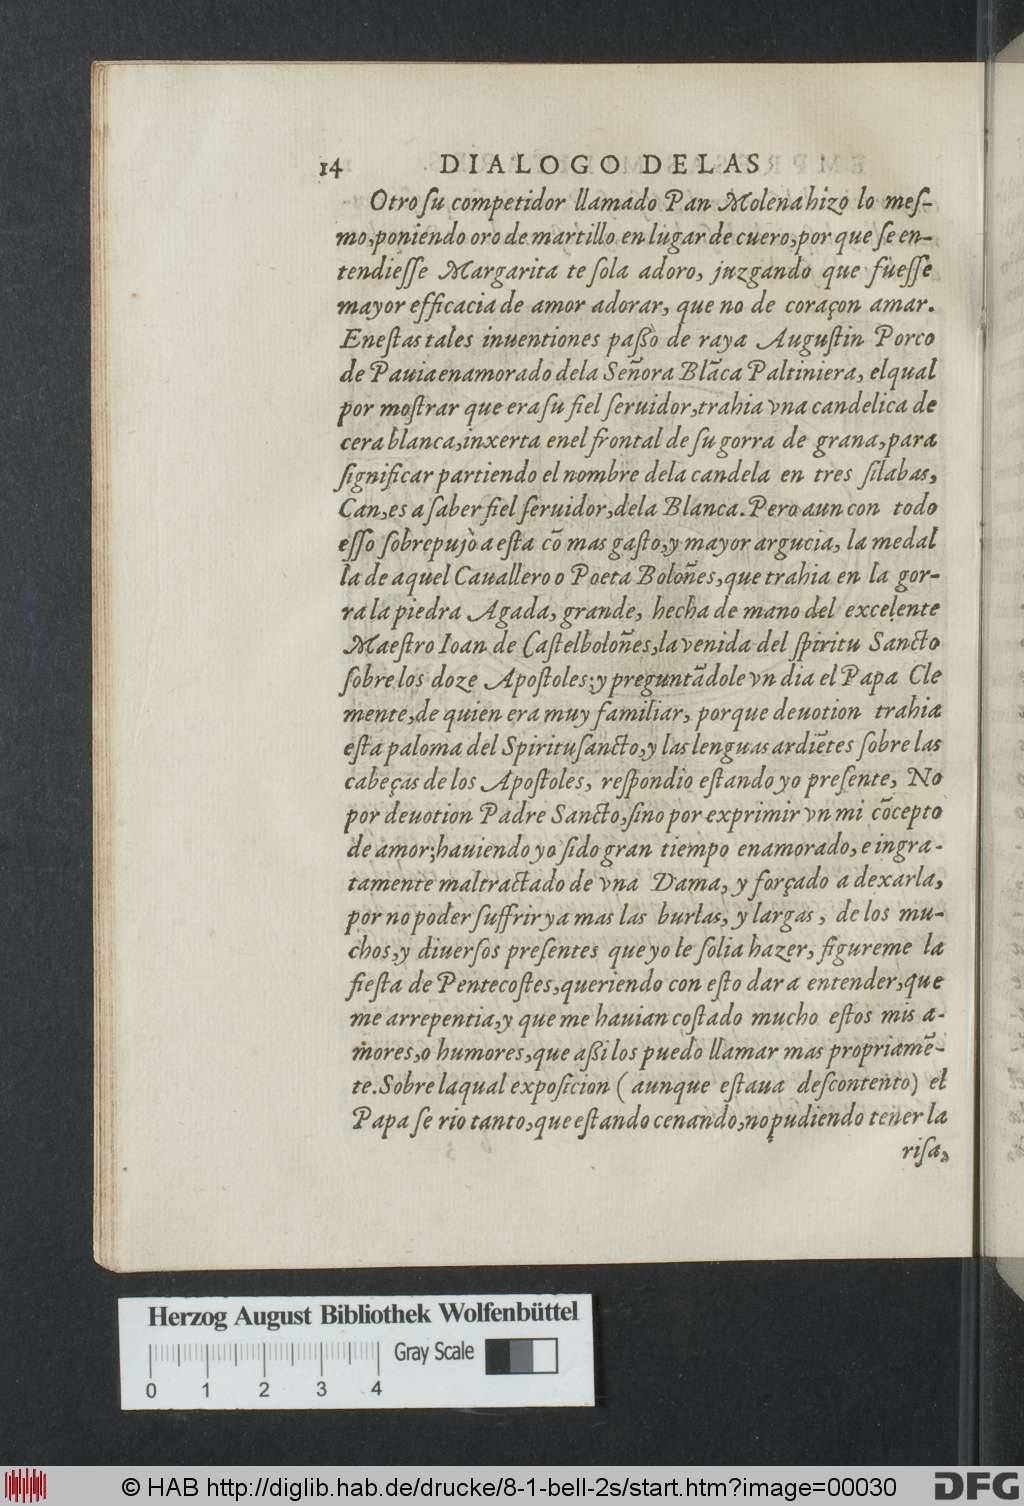 14 DIALOGO DE LAS
Otro ſu competidor llamado Pan Molena hizo lo meſ-
mo, poniendo oro de martillo en lugar de cuero, por que ſe en-
tendieſſe Margarita te ſola adoro, juzgando que fueſſe
mayor efficacia de amor adorar, que no de coraçon amar.
En eſtas tales inuentiones paßo de raya Auguſtin Porco
de Pauia enamorado dela Señora Blãca Paltiniera, el qual
por moſtrar que era ſu fiel ſeruidor, trahia vna candelica de
cera blanca, inxerta enel frontal de ſu gorra de grana, para
ſignificar partiendo el nombre dela candela en tres ſilabas,
Can, es a ſaber fiel ſeruidor, dela Blanca. Pero aun con todo
eſſo ſobrepujò a eſta cõ mas gaſto, y mayor argucia, la medal
la de aquel Cauallero o Poeta Boloñes, que trahia en la gor-
ra la piedra Agada, grande, hecha de mano del excelente
Maeſtro Ioan de Caſtelboloñes, la venida del ſpiritu Sancto
ſobre los doze Apoſtoles; y preguntãdole vn dia el Papa Cle
mente, de quien era muy familiar, porque deuotion trahia
eſta paloma del Spirituſancto, y las lenguas ardiẽtes ſobre las
cabeças de los Apoſtoles, reſpondio eſtando yo preſente, No
por deuotion Padre Sancto, ſino por exprimir vn mi cõcepto
de amor; hauiendo yo ſido gran tiempo enamorado, e ingra-
tamente maltractado de vna Dama, y forçado a dexarla,
por no poder ſuffrir ya mas las burlas, y largas, de los mu-
chos, y diuerſos preſentes que yo le ſolia hazer, figureme la
fieſta de Pentecoſtes, queriendo con eſto dar a entender, que
me arrepentia, y que me hauian coſtado mucho eſtos mis a-
mores, o humores, que aßi los puedo llamar mas propriamẽ-
te. Sobre laqual expoſicion (aunque eſtaua deſcontento) el
Papa ſe rio tanto, que eſtando cenando, no pudiendo tener la
riſa,
Herzog August Bibliothek Wolfenbüttel
Gray Scale
0 1 2 3 4
© HAB http://diglib.hab.de/drucke/8-1-bell-2s/start.htm?image=00030
DFG